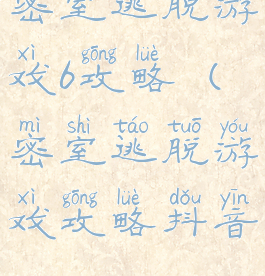 密室逃脱游
xì gōng lüè
戏6攻略（
mì shì táo tuō yóu
密室逃脱游
xì gōng lüè dǒu yīn
戏攻略抖音